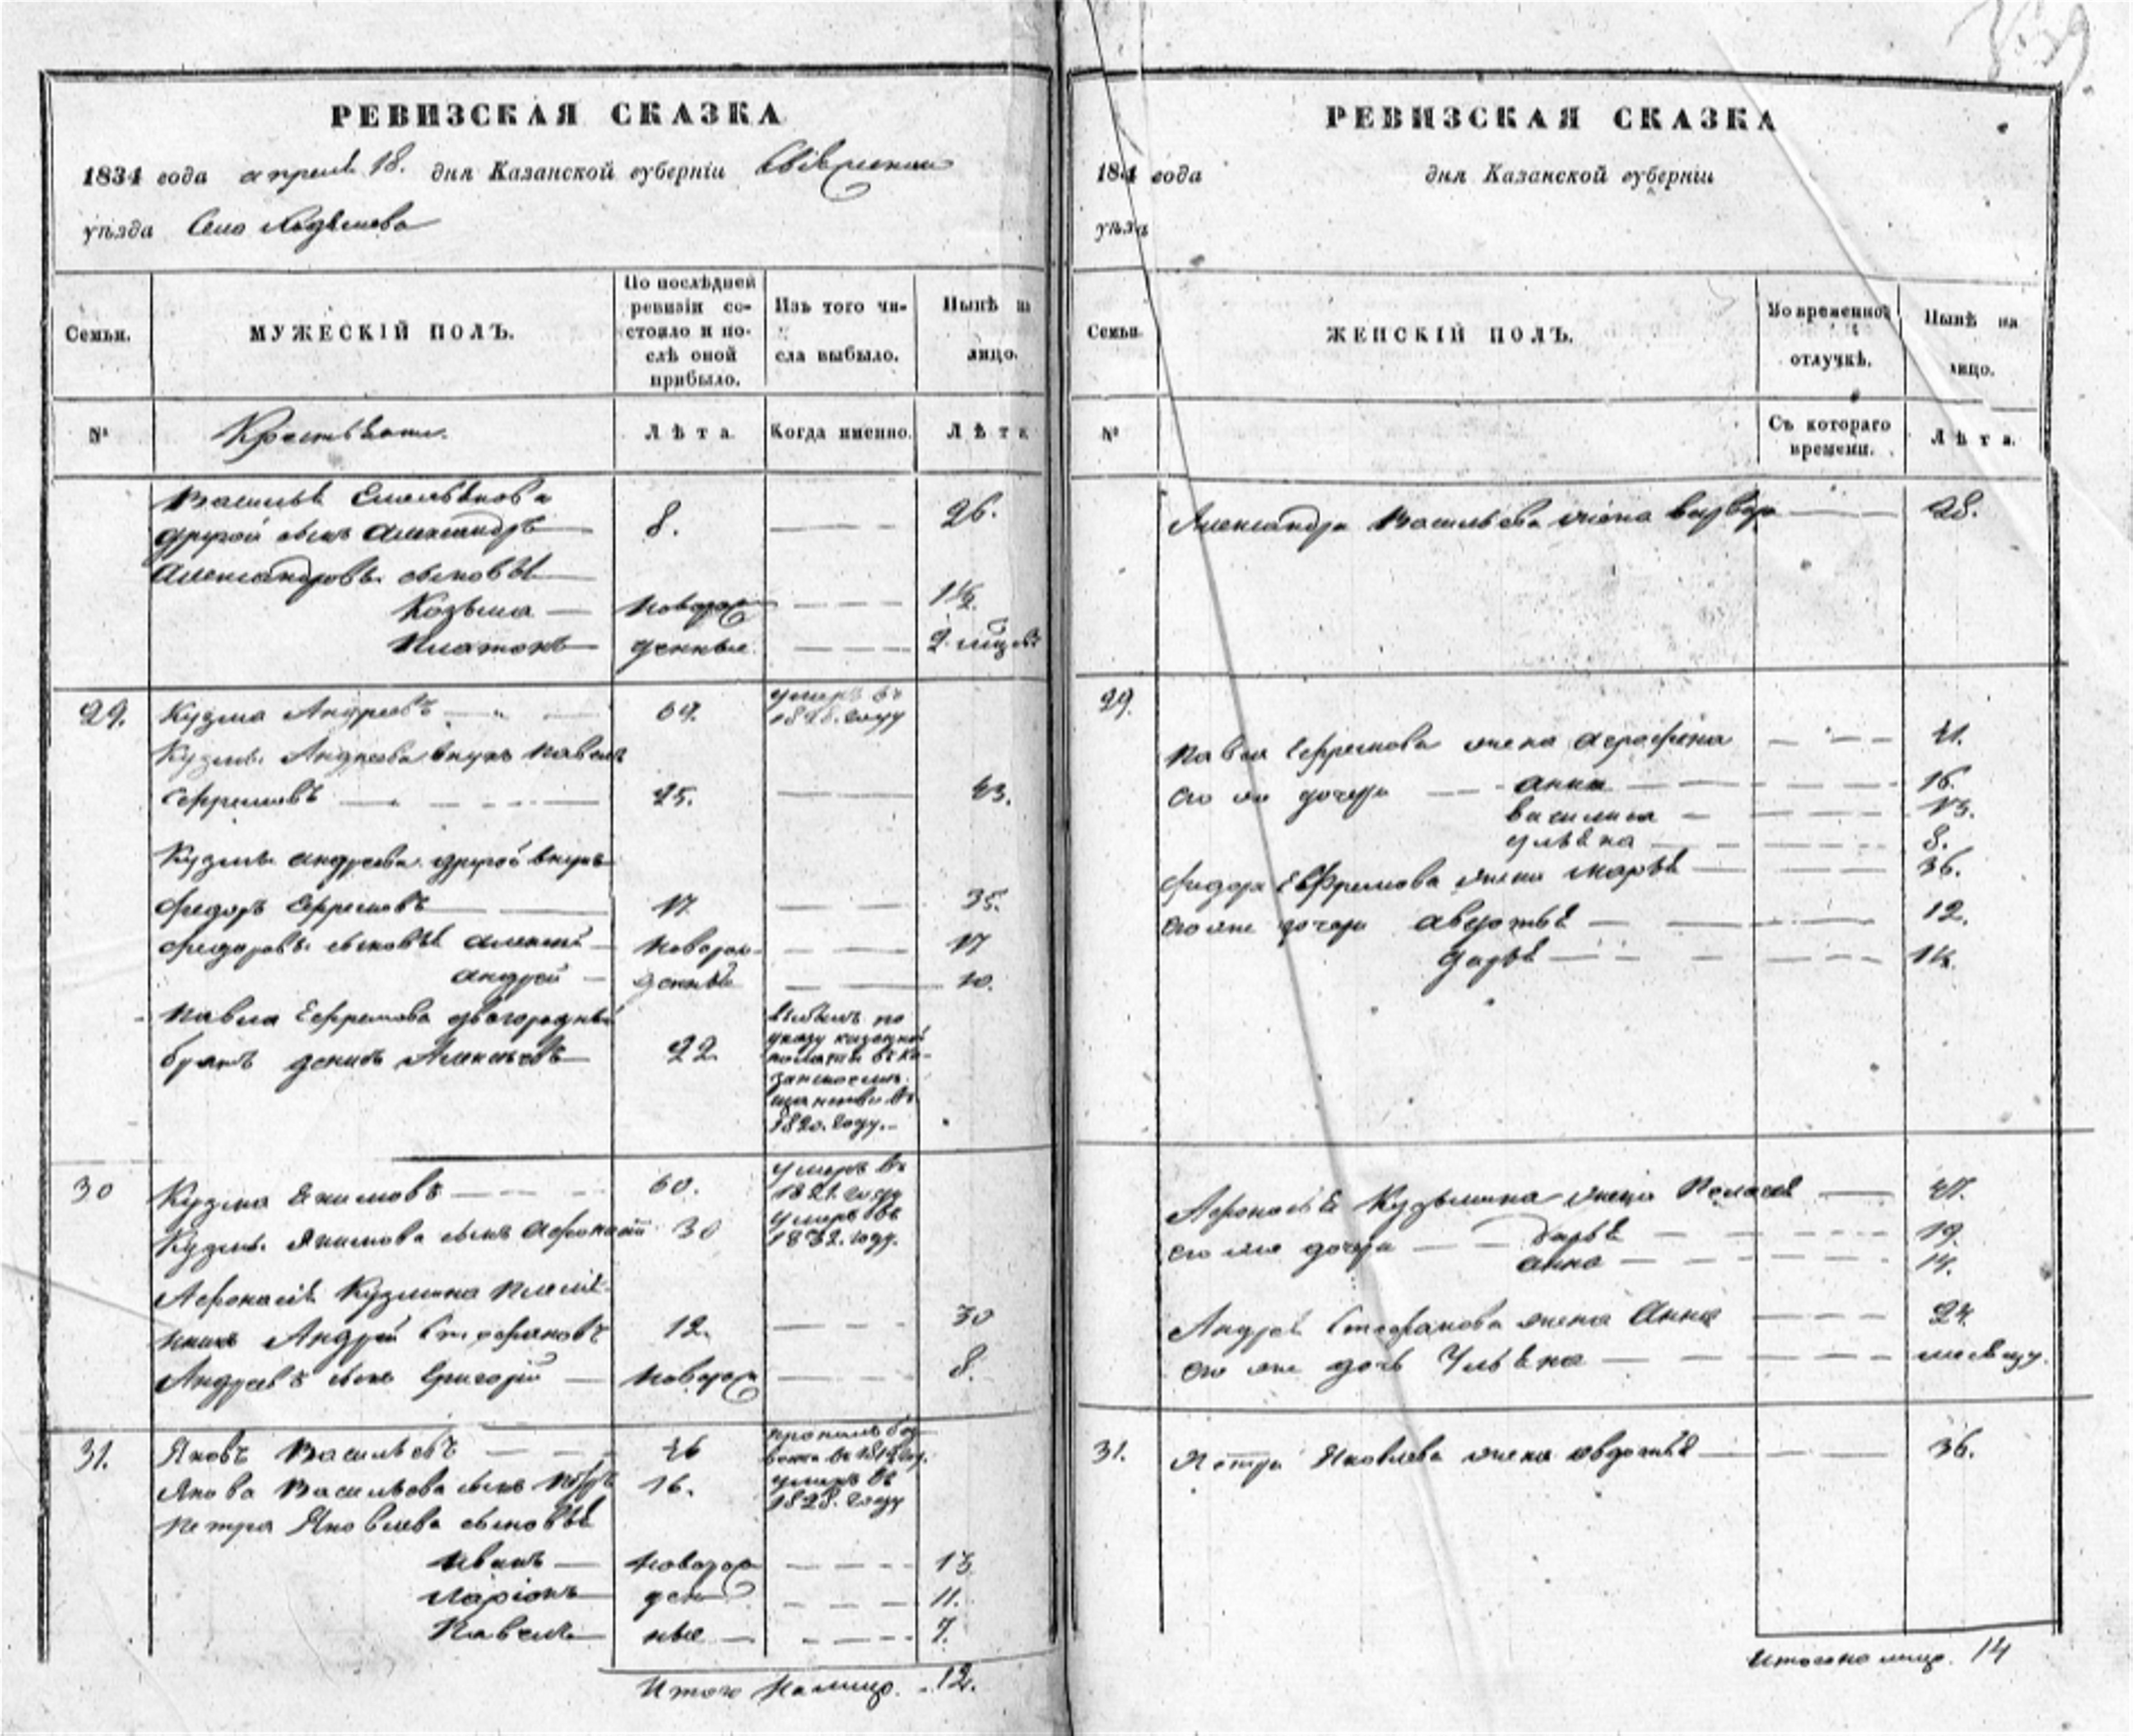 РЕВИЗСКАЯ СКАЗКА
1834 года апреля 18. дня Казанской губерніи
уѣзда Село
Семьи.
МУЖЕСКІЙ ПОЛЪ.
По послѣдней
ревизіи со-
стояло и по-
слѣ оной
прибыло.
Изъ того чи-
сла выбыло.
Нынѣ на
лицо.
№
Крестьяне.
Лѣта
Когда именно.
Лѣта
Василья Емельянова
другой сынъ Александръ 8. 26.
Александровы сыновья
Козьма новорож 1½
Платонъ денные 2 мцов
29. Кузма Андреевъ умеръ въ
году
Кузмы Андреева внукъ Павелъ
Ефремовъ 25. 43.
Кузмы Андреева другой внукъ
Федоръ Ефремовъ 17 35.
Федоровы сыновья Алексей новорож- 17
Андрей денный 10.
Павла Ефремова двоюродный
братъ Денисъ Алексеевъ 22
Выбылъ по
указу казенной
палаты въ Ка-
занское мѣ-
щанство въ
1820. году.
30 Кузма Якимовъ 60. умеръ въ
1821. году
Кузмы Якимова сынъ Афонасий 30 умеръ въ
1832. году.
Афонасія Кузмина племя-
никъ Андрей Стефановъ 12. 30
Андреевъ сынъ Григорій новорож 8.
31. Яковъ Васильевъ 46 пропалъ без
Якова Васильева сынъ Петръ 16. умеръ въ
1828. году
Петра Яковлева сыновья
Иванъ новорож 13
Ларіонъ ден 11.
Павелъ ные 7.
Итого на лицо. 12.
РЕВИЗСКАЯ СКАЗКА
года дня Казанской губерніи
уѣзда
Семьи.
ЖЕНСКІЙ ПОЛЪ.
Во временной
отлучкѣ.
Нынѣ на
лицо.
№
Съ котораго
времени.
Лѣта.
Александра Васильева жена Варвара 28.
29.
Павла Ефремова жена Агрофена 41.
его же дочери Анна 16.
Василиса 13.
Ульяна 8.
Федора Евфремова жена Марья 36.
его же дочери Авдотья 12.
Дарья
Афонасья Кузьмина жена Пелагея 47.
его же дочери Дарья 19.
Анна 14.
Андрея Стефанова жена Анна 24.
его же дочь Ульяна
31. Петра Яковлева жена Авдотья 36.
Итого на лицо. 14